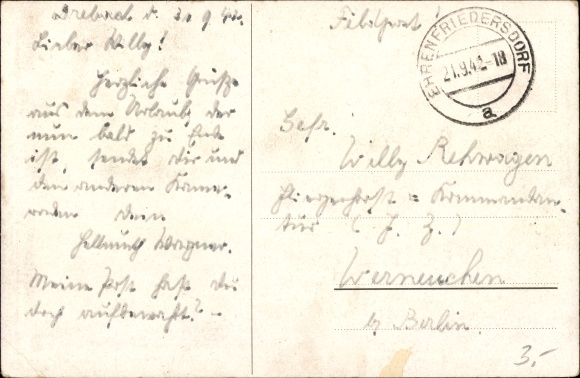 Drebach d. 20 9 42.
Lieber Willy!
Herzliche Grüße
aus dem Urlaub, der
nun bald zu Ende
ist, sendet dir und
den anderen Kame-
raden Dein
Hellmuth Wagner.
Meine Post hast du
doch aufbewahrt? –
Feldpost!
EHRENFRIEDERSDORF
21.9.42-18
a
Gefr.
Willy Rehwagen
Fliegerhorst = Kommandan-
tur
Werneuchen
b, Berlin.
3.-